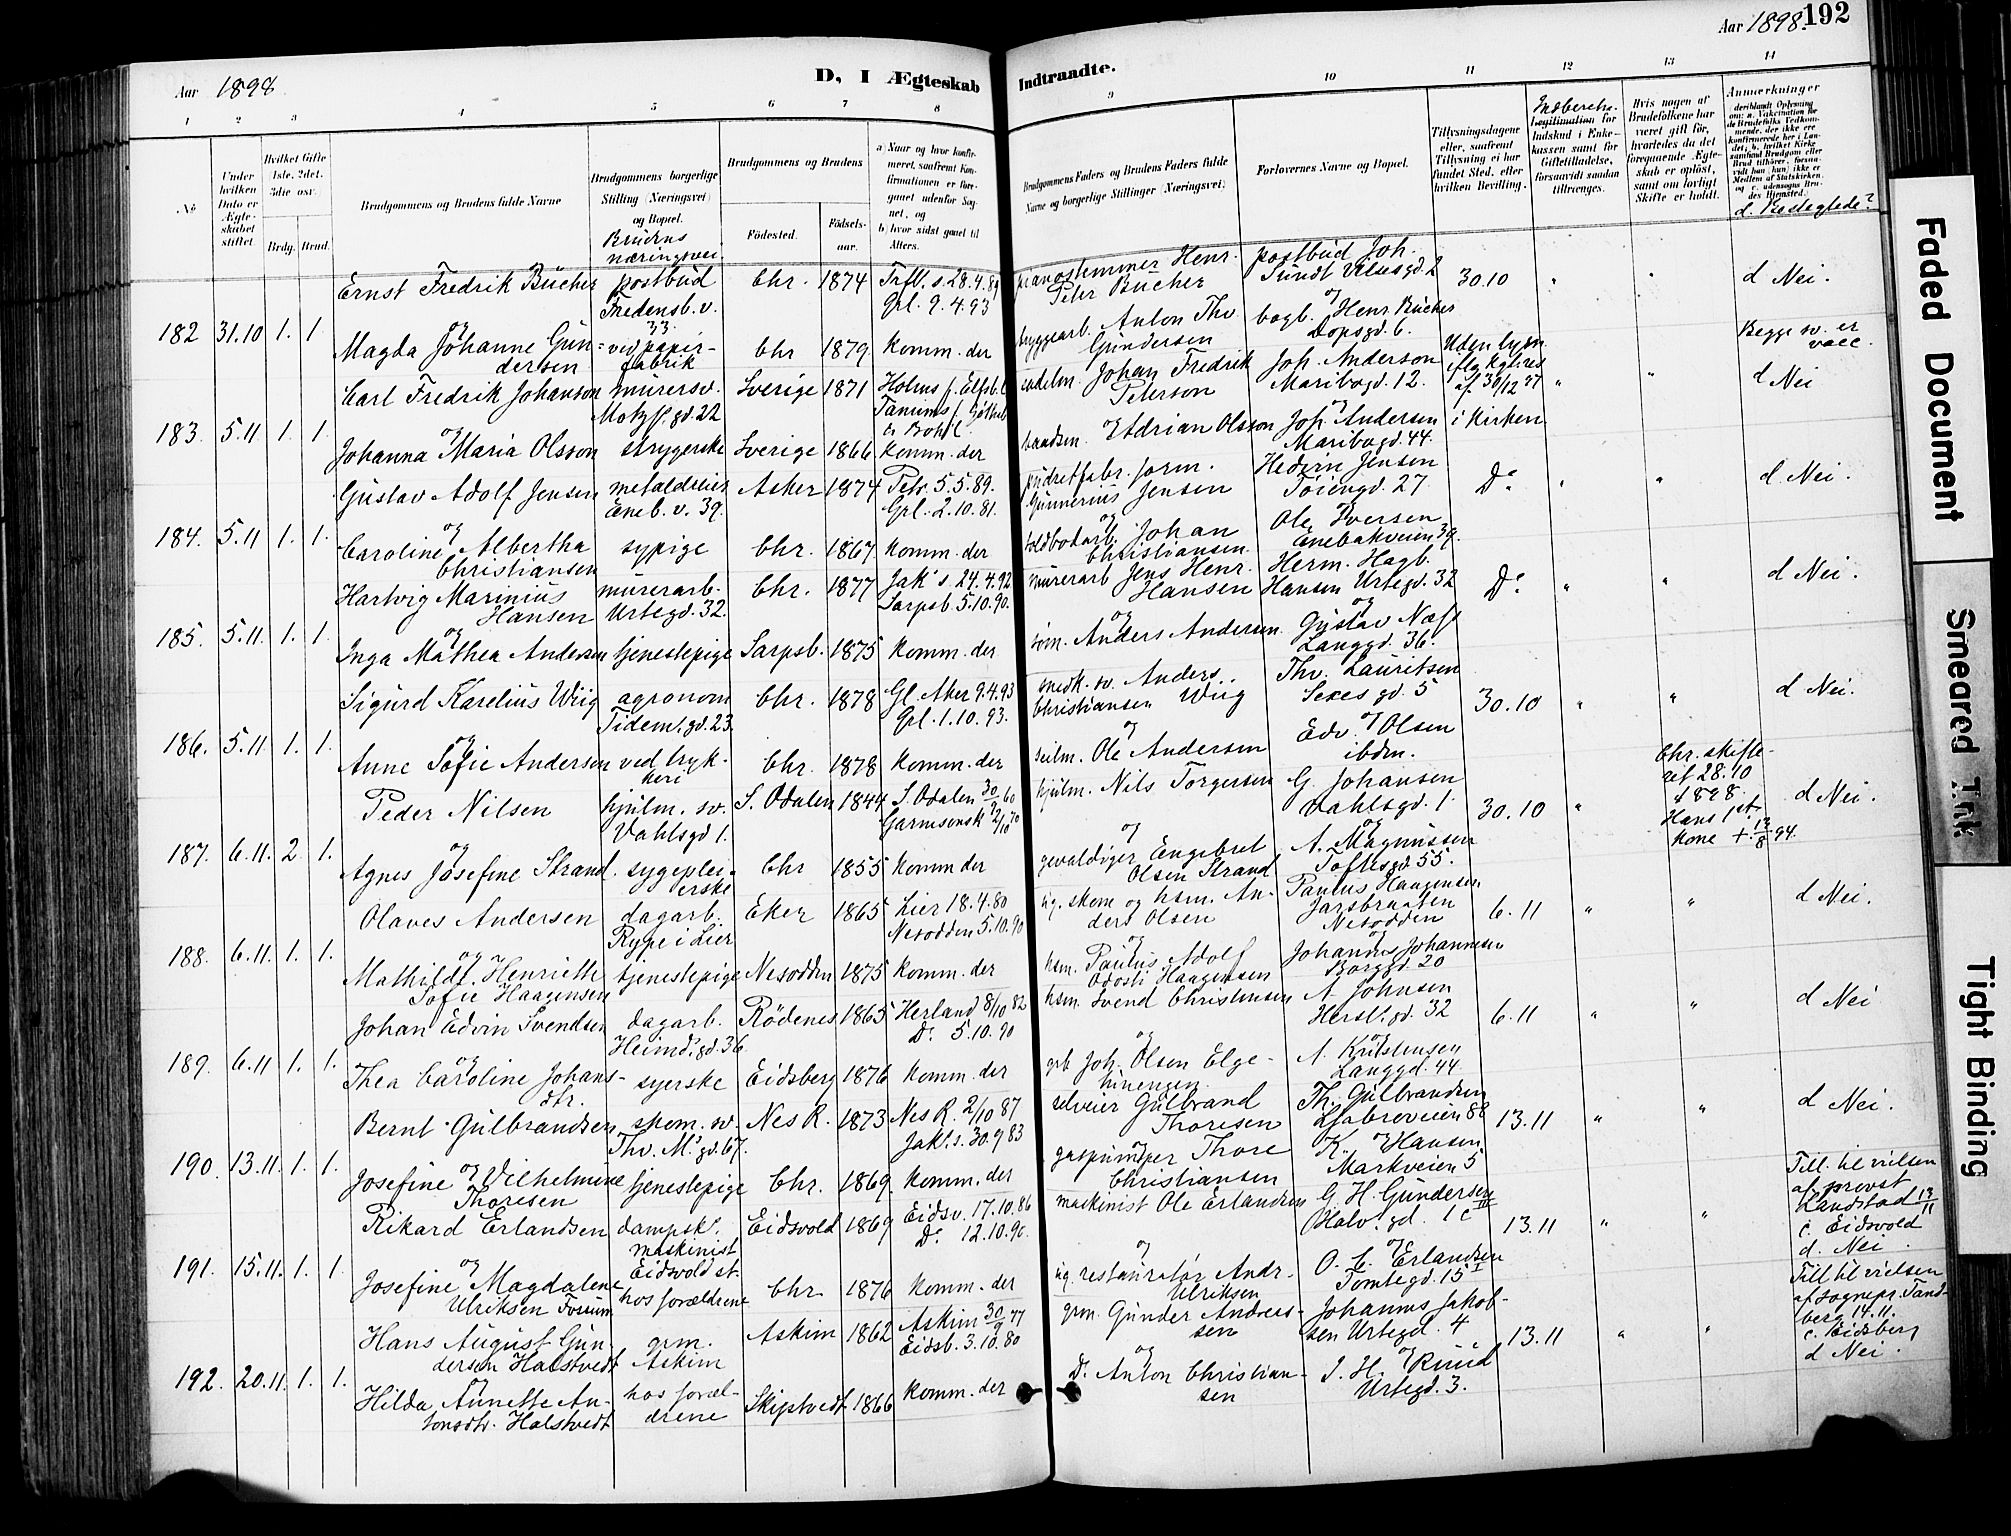 Aar 1898
D, I Ægteskab Indtraadte.
Aar 1898. 192
1 2 3 4 5 6 7 8 9 10 11 12 13 14
No
Under hvilken Dato er Ægteskabet stiftet.
Hvilket Gifte (1ste, 2det, 3die osv.
Brdg. Brud.
Brudgommens og Brudens fulde Navne
Brudgommens borgerlige Stilling (Næringsvei) og Bopæl.
Brudens næringsvei
Brudgommens og Brudens
Födested.
Födsels-aar.
a) Naar og hvor konfirmeret, saafremt Konfirmationen er foregaaet udenfor Sognet, og
b) hvor sidst gaaet til Alters.
Brudgommens Faders og Brudens Faders fulde Navne og borgerlige Stillinger (Næringsvei).
Forlovernes Navne og Bopæl.
Tillysningsdagene eller, saafremt Tillysning ei har fundet Sted, efter hvilken Bevilling.
Legitimation for Indskud i Enkekassen samt for Giftetilladelse, forsaavidt saadan tiltrænges.
Hvis nogen af Brudefolkene har været gift før, hvorledes da det foregaaende Ægteskab er opløst, samt om lovligt Skifte er holdt.
Anmærkninger
d. Beslegtede?
182 31.10 1. 1
Ernst Fredrik Bücher postbud Fredensb. v. 33. Chr. 1874 Trfl. s. 28.4.89 Grl. 9.4.93
pianostemmer Henr. Peter Bücher
postbud Joh. Sundt
30.10 " " d Nei.
og
Magda Johanne Gundersen ved papirfabrik Chr 1879. Komm. der
bryggearb. Anton Thv. Gundersen
bogb. Henr. Bücher Dopsgd. 6.
183. 5.11 1. 1.
Carl Fredrik Johanson murersv. Motzf. gd. 22 Sverige 1871
sadelm. Johan Fredrik Peterson
Joh. Anderson Maribogd. 12.
Uden lysn. iflg kgl. res af 30/12 97 i Kirken
" " Begge sv. er vacc. d Nei
og
Johanna Maria Olsson strygerske Sverige 1866 Komm. der
Adrian Olsson
Joh. Andersen Maribogd. 44.
184. 5.11 1. 1.
Gustav Adolf Jensen metaldreier Eneb. v. 39. Asker 1874 Petr. 5.5.89. Grl. 2.10.81.
Gunnerius Jensen
Hedvin Jensen Töiengd. 27.
Do " " d Nei.
og
Caroline Albertha Christiansen sypige Chr. 1867 Komm. der
Johan Christiansen.
Ole Iversen Enebakveien 39.
185. 5.11. 1. 1
Hartvig Marinius Hansen murerarb. Urtegd. 32. Chr. 1877 Jak's. 24.4.92 Sarpsb. 5.10.90.
murerarb Jens Henr. Hansen
Herm. Hagb. Hansen Urtegd. 32
Do " " d Nei.
og
Inga Mathea Andersen tjenestepige Sarpsb. 1875 Komm. der
söm. Anders Andersen.
Gustav Næss Langgd. 36.
186. 5.11 1. 1.
Sigurd Karelius Wiig agronom Tidem. gd. 23. Chr. 1878 Gl. Aker 9.4.93 Grl. 1.10.93.
snedk. sv. Anders Christiansen Wiig
Thv. Lauritsen Sexes gd. 5
30.10 " " d Nei.
og
Anne Sofie Andersen ved trykkeri Chr. 1878 Komm. der
seilm. Ole Andersen
Edv. Olsen ibdm.
187. 6.11. 2. 1.
Peder Nilsen hjulm. sv. Vahlsgd 1. S. Odalen 1844 S. Odalen 30/9 60
hjulm. Nils Torgersen
G. Johansen Vahlsgd. 1.
30.10 "
Chr. skifteret 28.10 1898. Hans 1st kone + 13/8 94.
d Nei.
og
Agnes Josefine Strand sygepleierske Chr 1855 Komm der
gevaldiger Engebret Olsen Strand
A. Magnussen Toftesgd. 55.
188. 6.11. 1. 1.
Olaves Andersen dagarb. Rype i Lier Eker 1865 Lier 18.4.80 Nesodden 5.10.90
ug. skom og hsm. Anders Olsen
Paulus Haagensen Jarsbraaten Nesodden
6.11 " " d Nei.
og
Mathilde Henriette Sofie Haagensen tjenestepige Nesodden 1875 Komm. der
hsm. Paulus Adolf Haagensen
Johannes Johannesen Borggd. 20
189. 6.11 1. 1.
Johan Edvin Svendsen dagarb. Heimd. gd. 36. Rödenes 1865 Herland 8/10 82 Do. 5.10.90
hsm. Svend Christensen
A. Johnsen Hersl. gd. 32
6.11 " " d Nei
og
Thea Caroline Johansdtr. syerske Eidsberg 1876 Komm. der
Joh. Olsen
A. Kristensen Langgd. 44.
190. 13.11. 1. 1.
Bernt Gulbrandsen skom. sv. Thv. M. gd. 67. Nes R. 1873 Nes R. 2/10 87 Jak. s. 30.9 83
selveier Gulbrand Thoresen
Th. Gulbrandsen Ljabroveien 88
13.11 " " d Nei.
og
Josefine Wilhelmine Thoresen tjenestepige Chr. 1869. Komm. der
Thore Christiansen
K. Hansen Markveien 5
191. 15.11. 1. 1
Rikard Erlandsen dampsk. maskinist Eidsvold st. Eidsvold 1869 Eidsv. 17.10.86 Do. 12.10.90.
maskinist Ole Erlandsen
G. H. Gundersen Halv. gd. 1 c III
13.11 " "
Till. til vielsen af provst Landstad 13/11 c. Eidsvold d. Nei.
og
Josefine Magdalene Ulriksen Fossum hos forældrene Chr. 1876 Komm. der
ug. restauratör Andr. Ulriksen
O. C. Erlandsen Tomtegd. 15 I
192. 20.11. 1. 1.
Hans August Gundersen Halstvedt grm. Askim Askim 1862 Askim 30/9 77 Eidsb. 3.10.80
grm. Gunder Anderssen
Johannes Jakobsen Urtegd. 4
13.11 " "
Till til vielsen af sognepr. Tandberg 14.11. c. Eidsberg d Nei.
og
Hilda Annette Antonsdtr. Halstvedt hos forældrene Skiptvedt 1866 Komm. der
Do. Anton Christiansen
J. H. Ruud Urtegd. 3.
Faded Document
Smeared Ink
Tight Binding